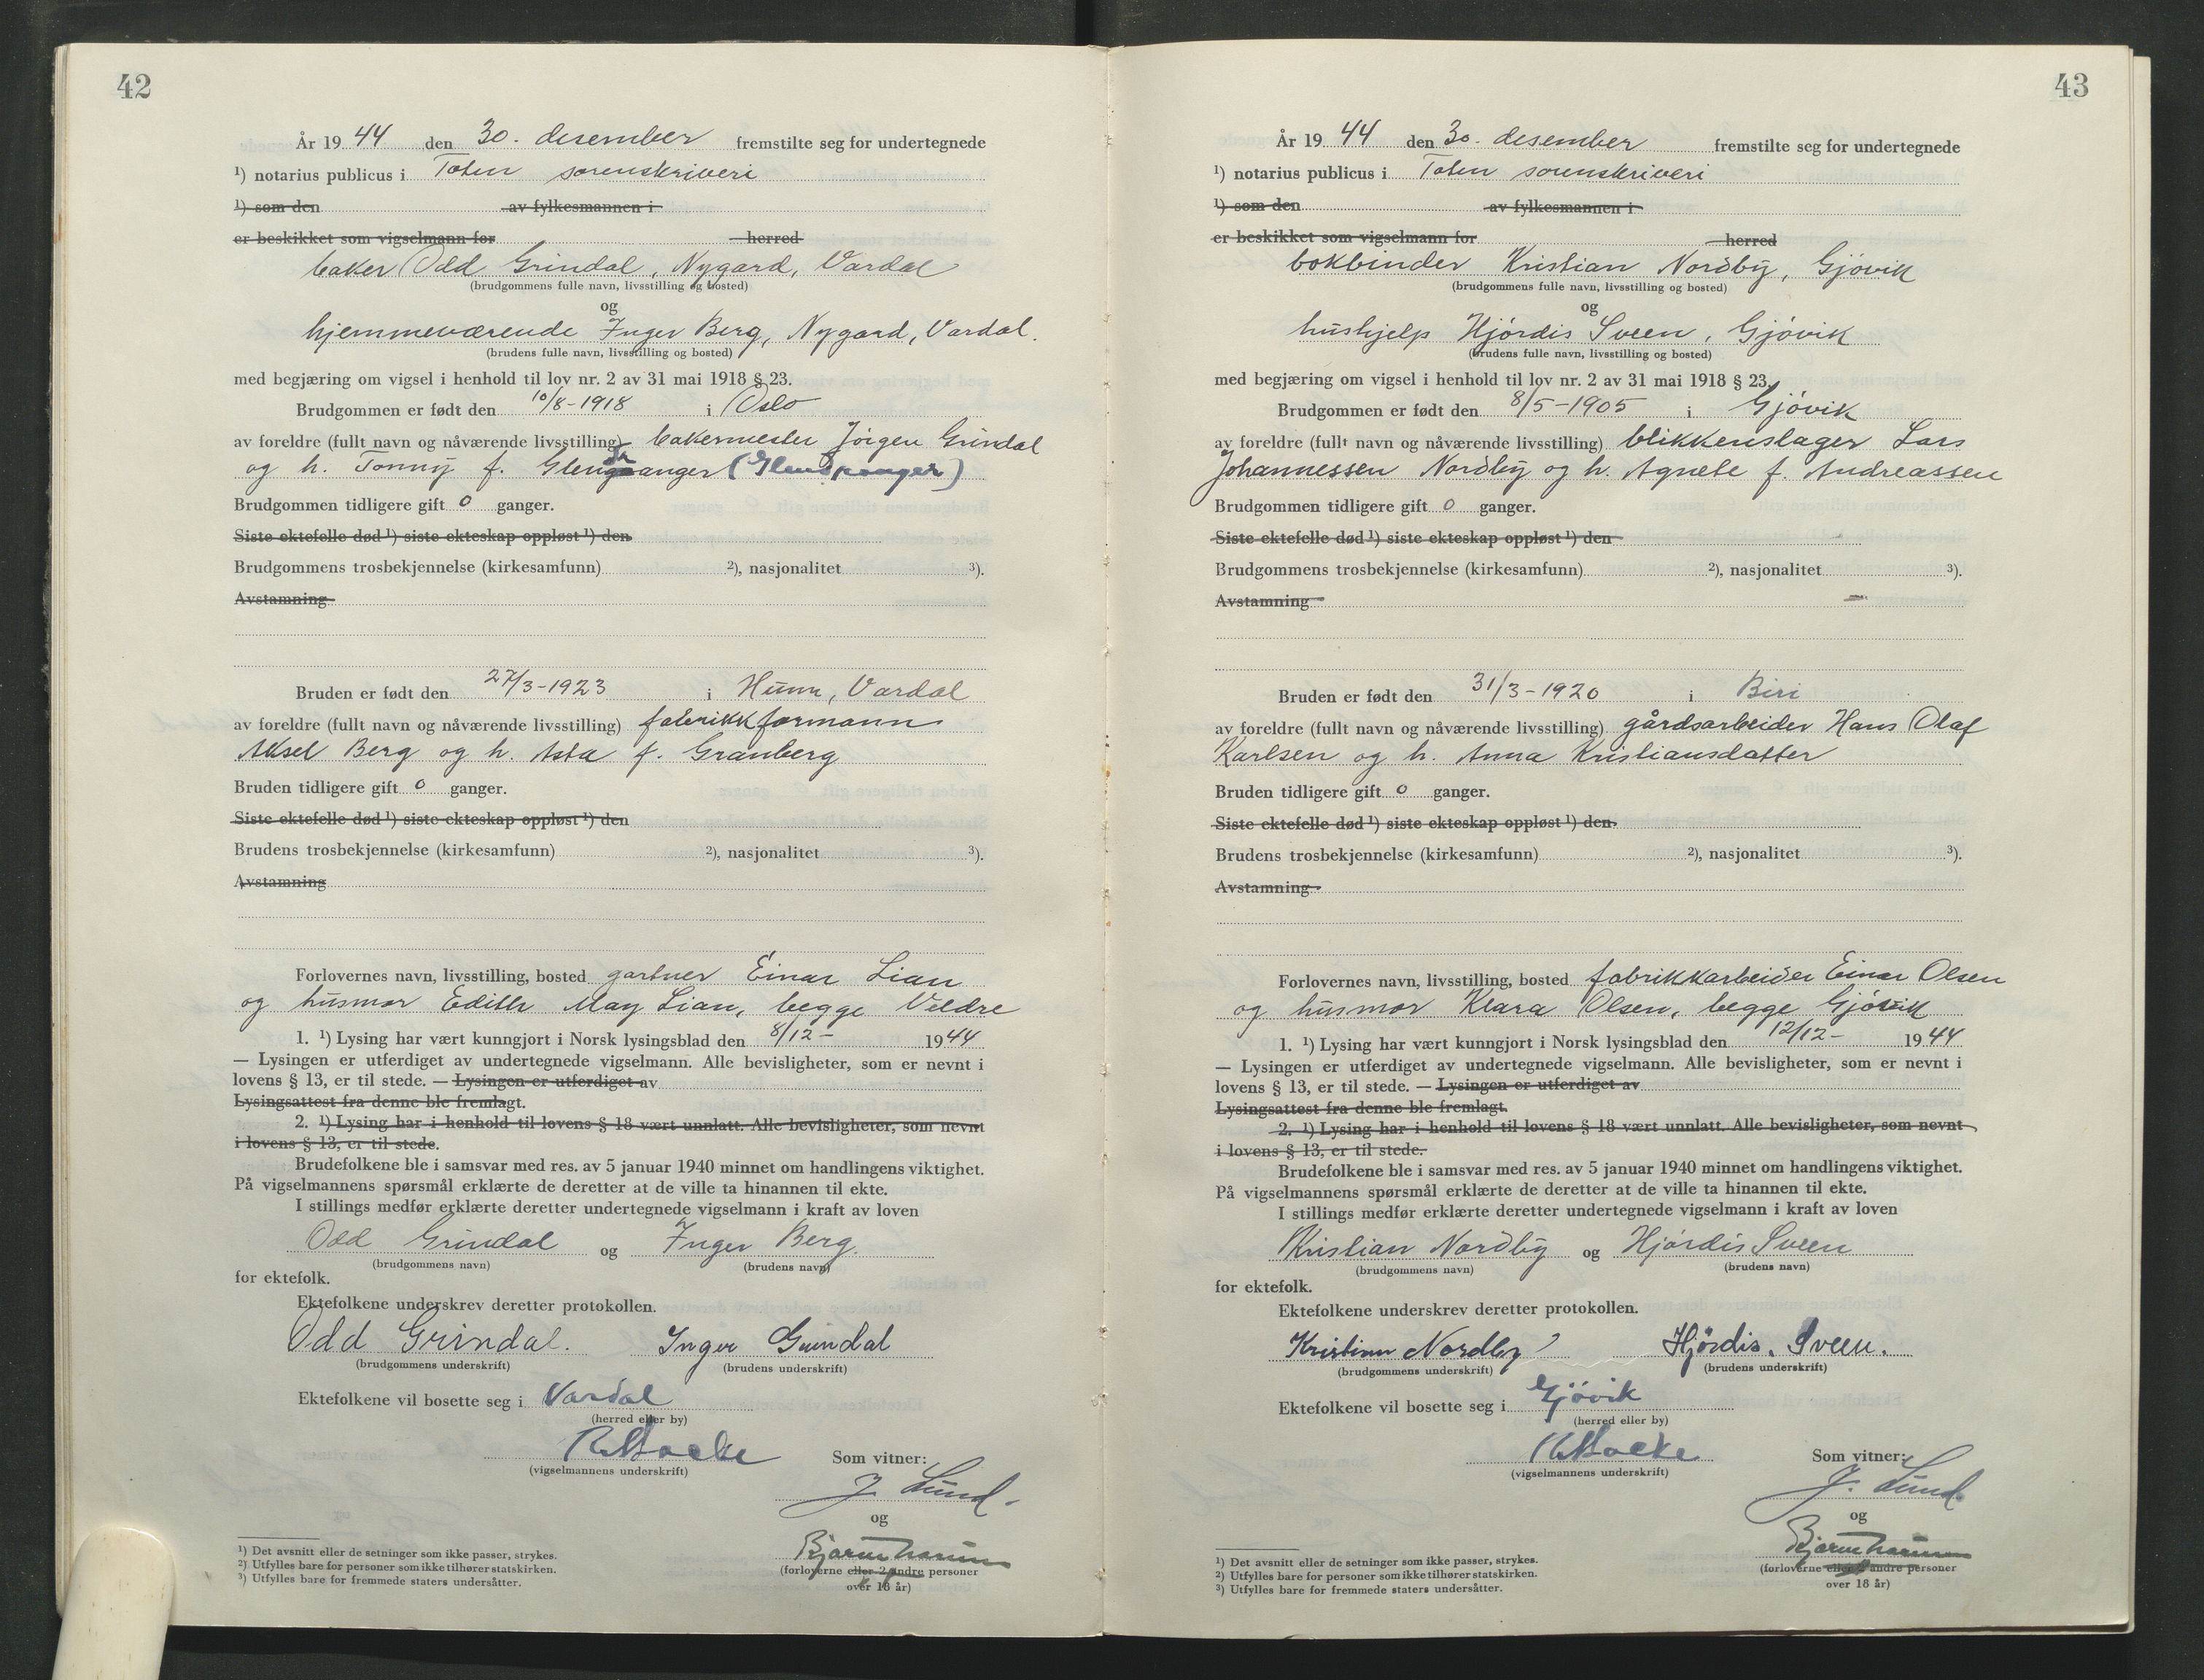 42
År 19 44 den 30. desember fremstilte seg for undertegnede
¹) notarius publicus i Toten sorenskriveri
¹) som den av fylkesmannen i
er beskikket som vigselmann for herred
baker Odd Grindal, Nygard, Vardal
(brudgommens fulle navn, livsstilling og bosted)
og
hjemmeværende Inger Berg, Nygard, Vardal.
(brudens fulle navn, livsstilling og bosted)
med begjæring om vigsel i henhold til lov nr. 2 av 31 mai 1918 § 23.
Brudgommen er født den 10/8-1918 i Oslo
av foreldre (fullt navn og nåværende livsstilling) bakermester Jörgen Grindal
og h. Tonny f. (Glenspanger)
Brudgommen tidligere gift 0 ganger.
Siste ektefelle død ¹) siste ekteskap oppløst ¹) den
Brudgommens trosbekjennelse (kirkesamfunn) ²), nasjonalitet ³).
Avstamning
Bruden er født den 27/3-1923 i Hunn, Vardal
av foreldre (fullt navn og nåværende livsstilling) fabrikkformann
Aksel Berg og h. Asta f. Granberg
Bruden tidligere gift 0 ganger.
Siste ektefelle død ¹) siste ekteskap oppløst ¹) den
Brudens trosbekjennelse (kirkesamfunn) ²), nasjonalitet ³).
Avstamning
Forlovernes navn, livsstilling, bosted gartner Einar Lian
og husmor Edith May Lian, begge Veldre
1. ¹) Lysing har vært kunngjort i Norsk lysingsblad den 8/12- 1944
— Lysingen er utferdiget av undertegnede vigselmann. Alle bevisligheter, som er nevnt i
lovens § 13, er til stede. — Lysingen er utferdiget av
Lysingsattest fra denne ble fremlagt.
2. ¹) Lysing har i henhold til lovens § 18 vært unnlatt. Alle bevisligheter, som nevnt
i lovens § 13, er til stede.
Brudefolkene ble i samsvar med res. av 5 januar 1940 minnet om handlingens viktighet.
På vigselmannens spørsmål erklærte de deretter at de ville ta hinannen til ekte.
I stillings medfør erklærte deretter undertegnede vigselmann i kraft av loven
Odd Grindal og Inger Berg.
(brudgommens navn) (brudens navn)
for ektefolk.
Ektefolkene underskrev deretter protokollen.
Odd Grindal. Inger Grindal
(brudgommens underskrift) (brudens underskrift)
Ektefolkene vil bosette seg i Vardal
(herred eller by)
Som vitner:
(vigselmannens underskrift)
J. Lund.
og
Bjarne
(forloverne eller 2 andre personer
over 18 år)
¹) Det avsnitt eller de setninger som ikke passer, strykes.
²) Utfylles bare for personer som ikke tilhører statskirken.
³) Utfylles bare for fremmede staters undersåtter.
43
År 19 44 den 30. desember fremstilte seg for undertegnede
¹) notarius publicus i Toten sorenskriveri
¹) som den av fylkesmannen i
er beskikket som vigselmann for herred
bokbinder Kristian Nordby, Gjövik
(brudgommens fulle navn, livsstilling og bosted)
og
hushjelp Hjördis Sveen, Gjövik
(brudens fulle navn, livsstilling og bosted)
med begjæring om vigsel i henhold til lov nr. 2 av 31 mai 1918 § 23.
Brudgommen er født den 8/5-1905 i Gjövik
av foreldre (fullt navn og nåværende livsstilling) blikkenslager Lars
Johannessen Nordby og h. Agnete f. Andreassen
Brudgommen tidligere gift 0 ganger.
Siste ektefelle død ¹) siste ekteskap oppløst ¹) den
Brudgommens trosbekjennelse (kirkesamfunn) ²), nasjonalitet ³).
Avstamning
Bruden er født den 31/3-1920 i Biri
av foreldre (fullt navn og nåværende livsstilling) gårdsarbeider Hans Olaf
Karlsen og h. Anna Kristiansdatter
Bruden tidligere gift 0 ganger.
Siste ektefelle død ¹) siste ekteskap oppløst ¹) den
Brudens trosbekjennelse (kirkesamfunn) ²), nasjonalitet ³).
Avstamning
Forlovernes navn, livsstilling, bosted fabrikkarbeider Einar Olsen
og husmor Klara Olsen, begge Gjövik
1. ¹) Lysing har vært kunngjort i Norsk lysingsblad den 12/12- 1944
— Lysingen er utferdiget av undertegnede vigselmann. Alle bevisligheter, som er nevnt i
lovens § 13, er til stede. — Lysingen er utferdiget av
Lysingsattest fra denne ble fremlagt.
2. ¹) Lysing har i henhold til lovens § 18 vært unnlatt. Alle bevisligheter, som nevnt
i lovens § 13, er til stede.
Brudefolkene ble i samsvar med res. av 5 januar 1940 minnet om handlingens viktighet.
På vigselmannens spørsmål erklærte de deretter at de ville ta hinannen til ekte.
I stillings medfør erklærte deretter undertegnede vigselmann i kraft av loven
Kristian Nordby og Hjördis Sveen
(brudgommens navn) (brudens navn)
for ektefolk.
Ektefolkene underskrev deretter protokollen.
Kristian Nordby Hjördis. Sveen.
(brudgommens underskrift) (brudens underskrift)
Ektefolkene vil bosette seg i Gjövik
(herred eller by)
Som vitner:
(vigselmannens underskrift)
J. Lund.
og
Bjarne
(forloverne eller 2 andre personer
over 18 år)
¹) Det avsnitt eller de setninger som ikke passer, strykes.
²) Utfylles bare for personer som ikke tilhører statskirken.
³) Utfylles bare for fremmede staters undersåtter.